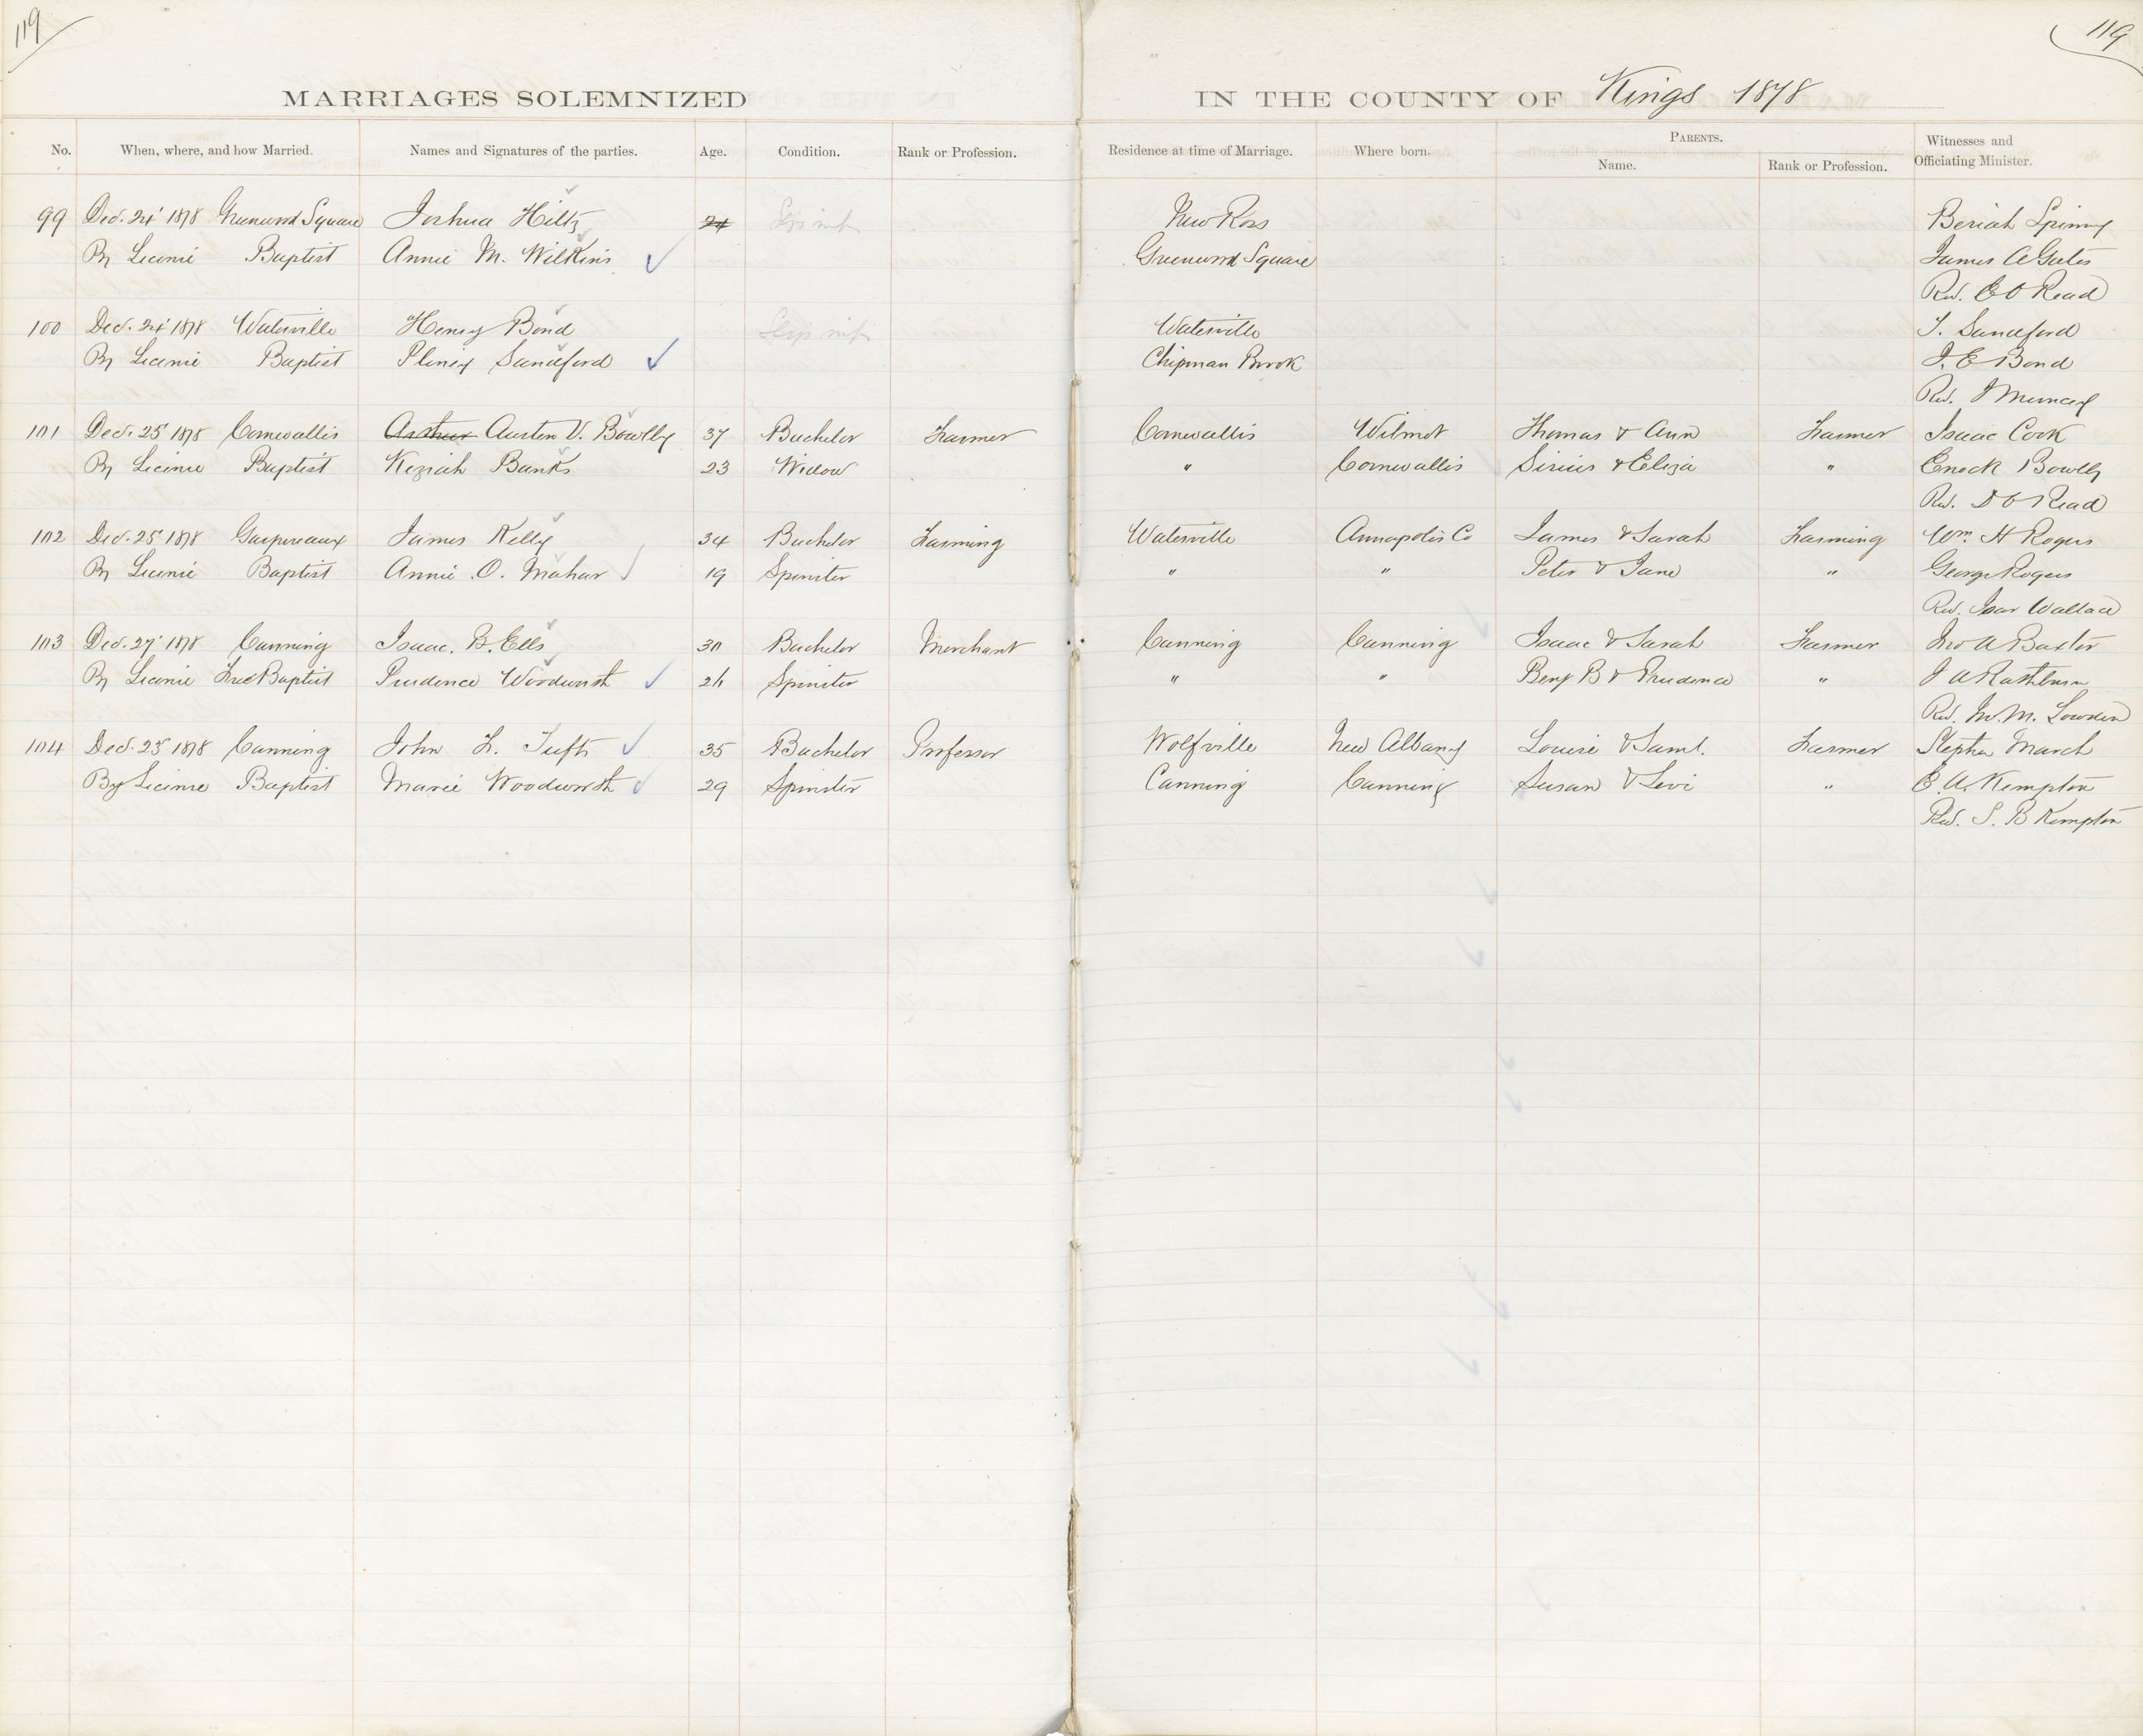 119
119
MARRIAGES SOLEMNIZED IN THE COUNTY OF Kings 1878
No. When, where, and how Married. Names and Signatures of the parties. Age. Condition. Rank or Profession. Residence at time of Marriage. Where born. PARENTS. Name. Rank or Profession. Witnesses and Officiating Minister.
99 Dec. 24' 1878 Greenwood Square Joshua Hiltz 24 New Ross Beriah Spinny
By License Baptist Annie M. Wilkins Greenwood Square James A Gates
Rev. E O Read
100 Dec. 24' 1878 Waterville Henry Bond Waterville S. Sandford
By License Baptist Pliney Sandford Chipman Brook J. E Bond
Rev. J
101 Dec. 25' 1878 Cornwallis Arthur Austen V. Bowlby 37 Bachelor Farmer Cornwallis Wilmot Thomas & Ann Farmer Isaac Cook
By License Baptist Keziah Banks 23 Widow " Cornwallis Sirius & Eliza " Enock Bowlby
Rev. D O Read
102 Dec. 25' 1878 Gaspereaux James Kelly 34 Bachelor Farming Waterville Annapolis Co James & Sarah Farming Wm. H Rogers
By License Baptist Annie O. Mahar 19 Spinster " " Peter & Jane " George Rogers
Rev. Isaa Wallace
103 Dec. 27' 1878 Canning Isaac. B. Ells 30 Bachelor Merchant Canning Canning Isaac & Sarah Farmer Jno A Baxter
By License Free Baptist Prudence Woodworth 26 Spinster " " Benj B & Prudence " J A Rathburn
Rev. M. Lowden
104 Dec. 25' 1878 Canning John F. Tufts 35 Bachelor Professor Wolfville New Albany Louise & Saml. Farmer Stephen March
By License Baptist Marie Woodworth 29 Spinster Canning Canning Susan & Levi " E. A. Kempton
Rev. S. B Kempton